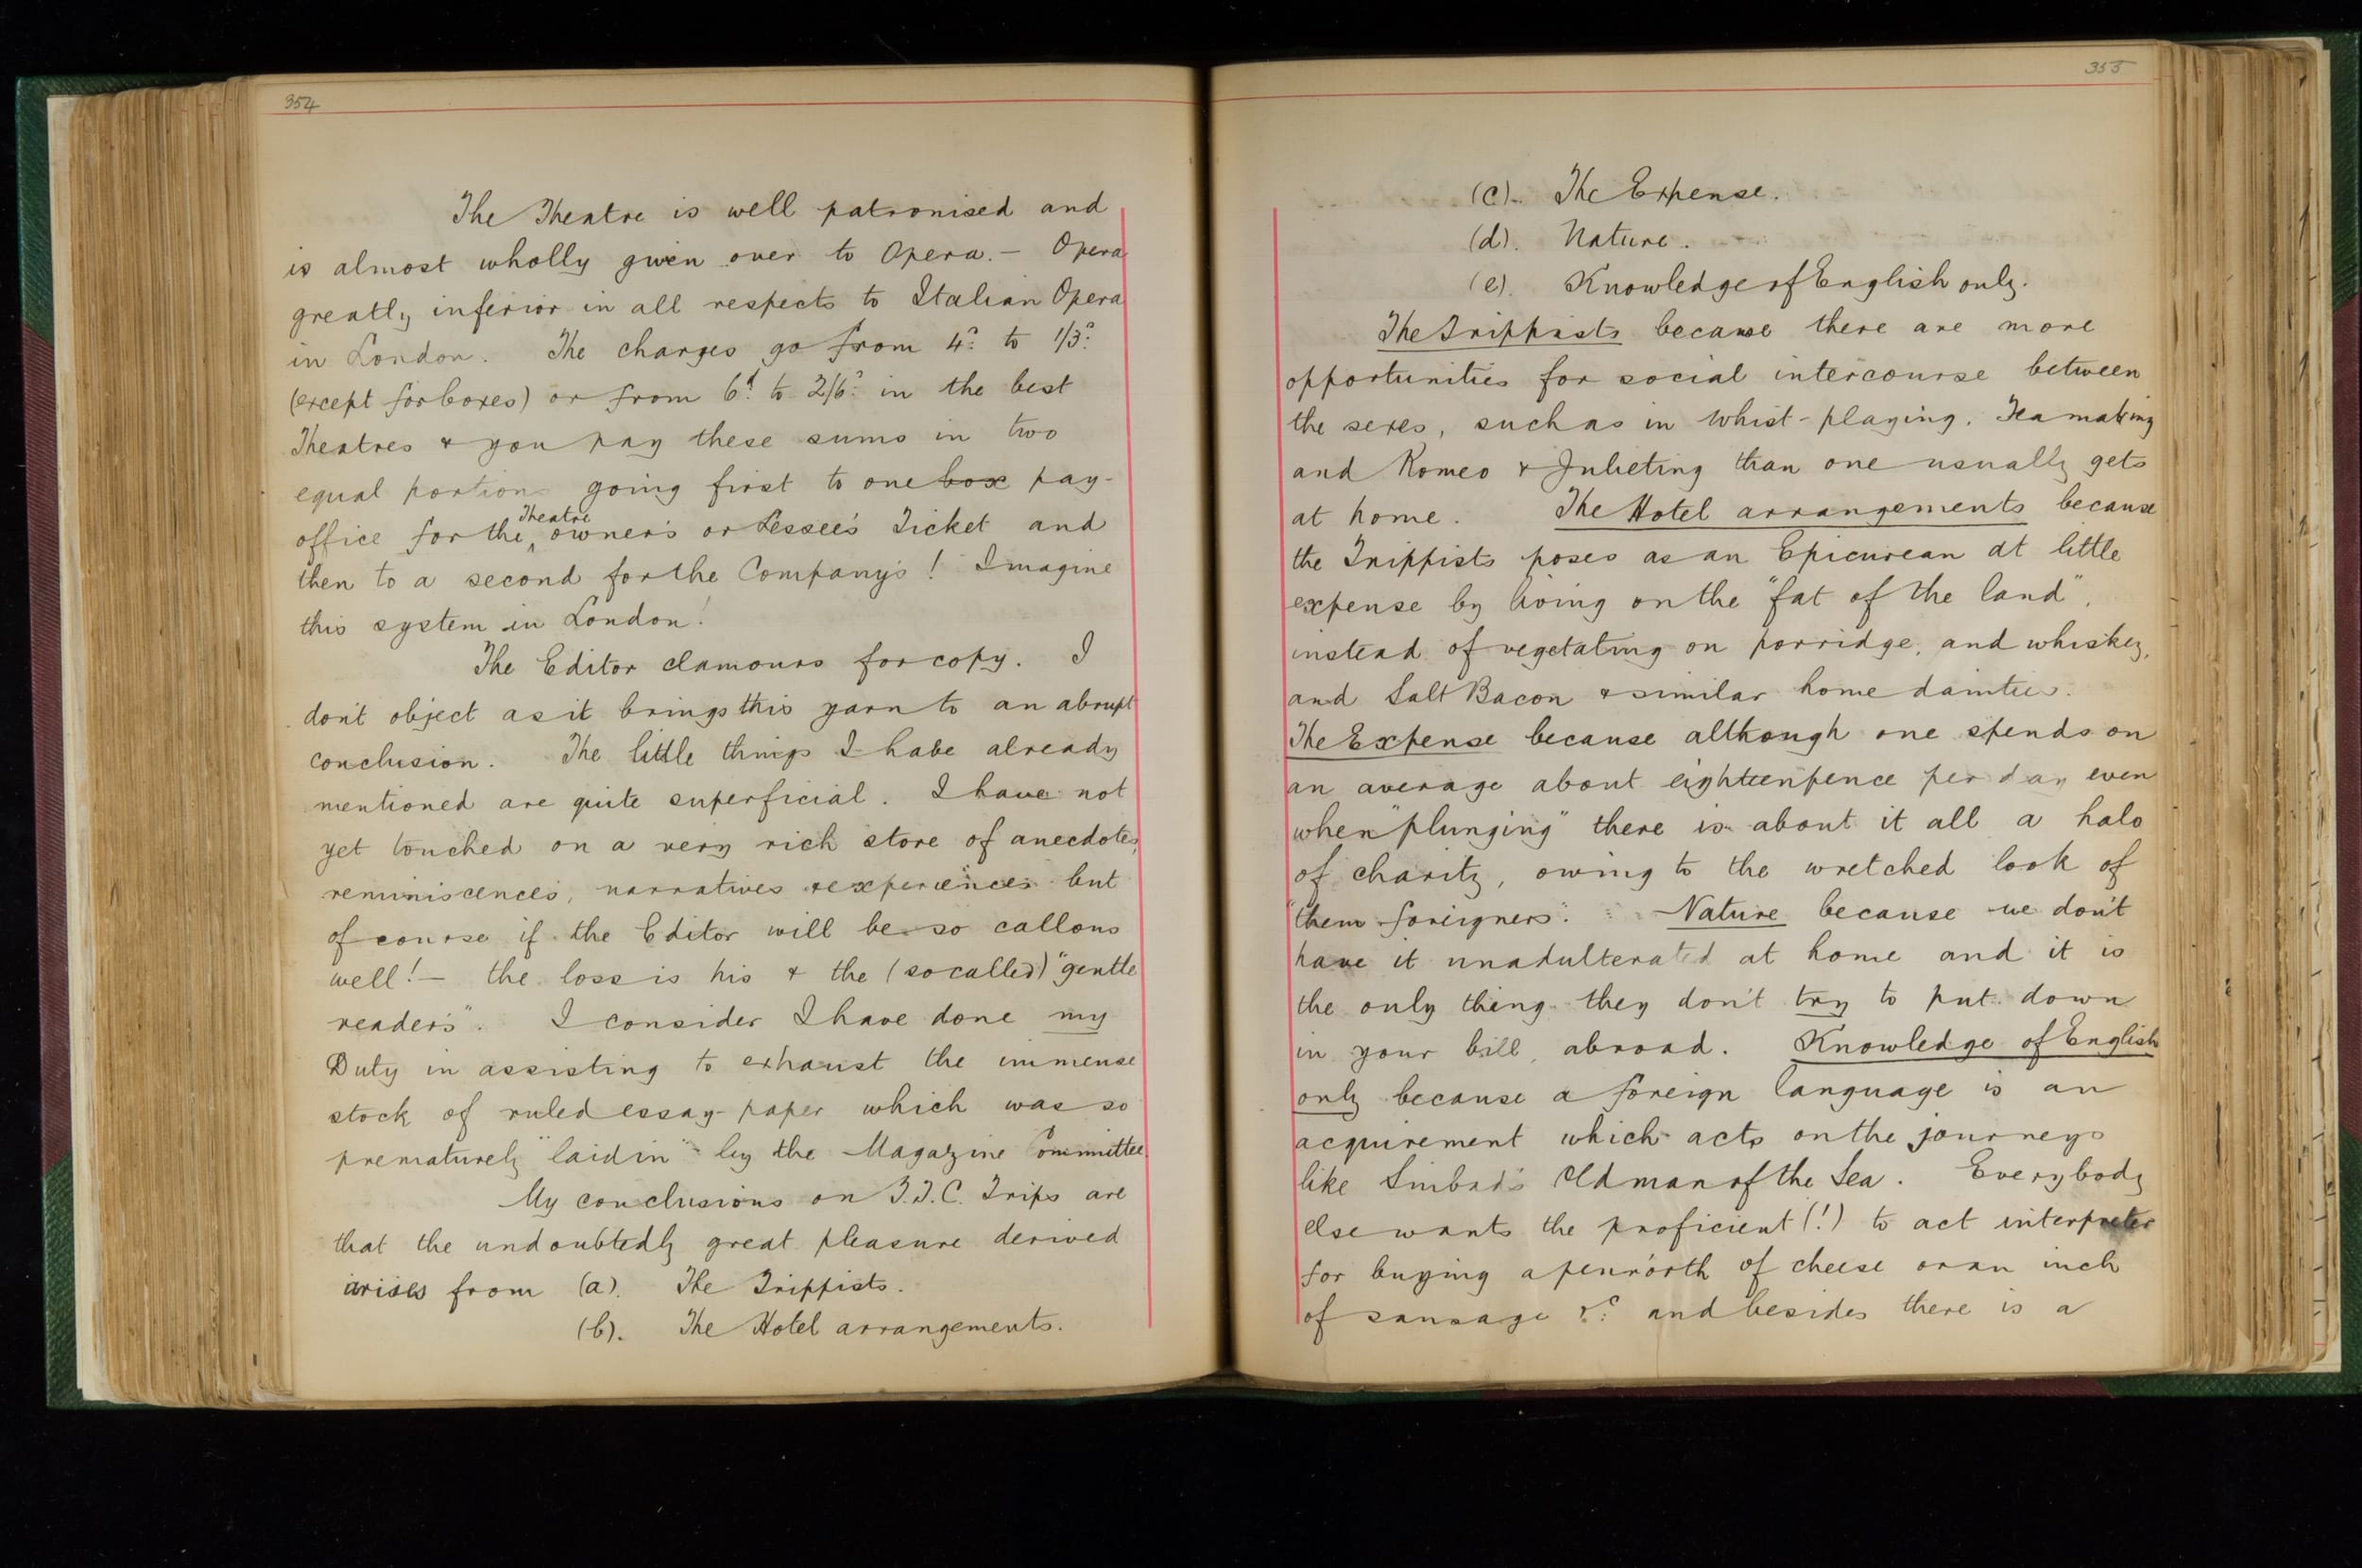 354
The Theatre is well patronised and
is almost wholly given over to Opera. — Opera
greatly inferior in all respects to Italian Opera
in London. The charges go from 4d. to 1/3d.
(except for boxes) or from 6d. to 2/6d. in the best
Theatres & you pay these sums in two
equal portions going first to one box pay-
office for the Theatre owner's or Lessee's Ticket and
then to a second for the Company's! Imagine
this system in London!
The Editor clamours for copy. I
don't object as it brings this yarn to an abrupt
conclusion. The little things I have already
mentioned are quite superficial. I have not
yet touched on a very rich store of anecdotes,
reminiscences, narratives & experiences but
of course if the Editor will be so callous
well! — the loss is his & the (so called) "gentle
readers". I consider I have done my
Duty in assisting to exhaust the immense
stock of ruled essay-paper which was so
prematurely "laid in" by the Magazine Committee.
My conclusions on T.T.C. Trips are
that the undoubtedly great pleasure derived
arises from (a). The Trippists.
(b). The Hotel arrangements.
355
(c). The Expense.
(d). Nature.
(e). Knowledge of English only.
The Trippists because there are more
opportunities for social intercourse between
the sexes, such as in Whist-playing, Tea making
and Romeo & Julieting than one usually gets
at home. The Hotel arrangements because
the Trippists poses as an Epicurean at little
expense by living on the "fat of the land",
instead of vegetating on porridge, and whiskey,
and Salt Bacon & similar home dainties.
The Expense because although one spends on
an average about eighteenpence per day even
when "plunging" there is about it all a halo
of charity, owing to the wretched look of
"them foreigners". Nature because we don't
have it unadulterated at home and it is
the only thing they don't try to put down
in your bill, abroad. Knowledge of English
only because a foreign language is an
acquirement which acts on the journeys
like Sinbad's Old man of the Sea. Everybody
else wants the proficient (!) to act interpreter
for buying a penn'orth of cheese or an inch
of sausage &c. and besides there is a